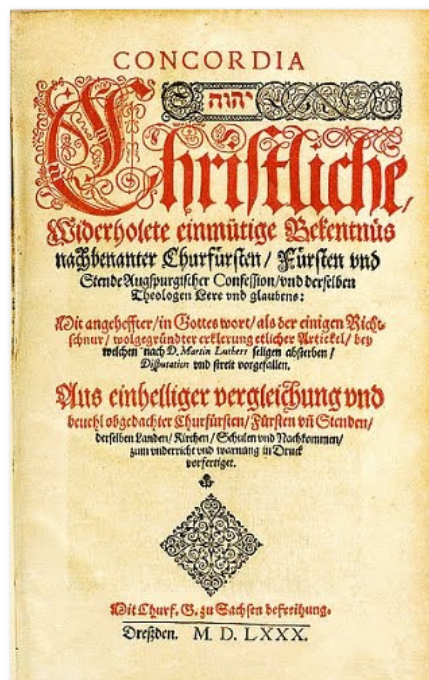 CONCORDIA
יהוה
Christliche,
Widerholete einmütige Bekentnüs
nachbenanter Churfürsten/ Fürsten vnd
Stende Augspurgischer Confession/ vnd derselben
Theologen Lere vnd glaubens:
Mit angeheffter/ in Gottes wort/ als der einigen Richt-
schnur/ wolgegründter erklerung etlicher Artickel/ bey
welchen nach D. Martin Luthers seligen absterben/
Disputation vnd streit vorgefallen.
Aus einhelliger vergleichung vnd
beuehl obgedachter Churfürsten/ Fürsten vñ Stenden/
derselben Landen/ Kirchen/ Schulen vnd Nachkommen/
zum vnderricht vnd warnung in Druck
vorfertiget.
Mit Churf. G. zu Sachsen befreihung.
Dreßden. M. D. LXXX.